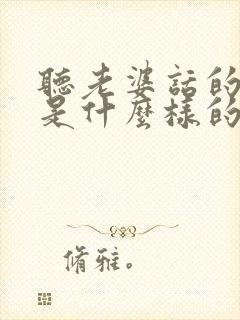 聽老婆話的
是什麼樣的
脩雅。